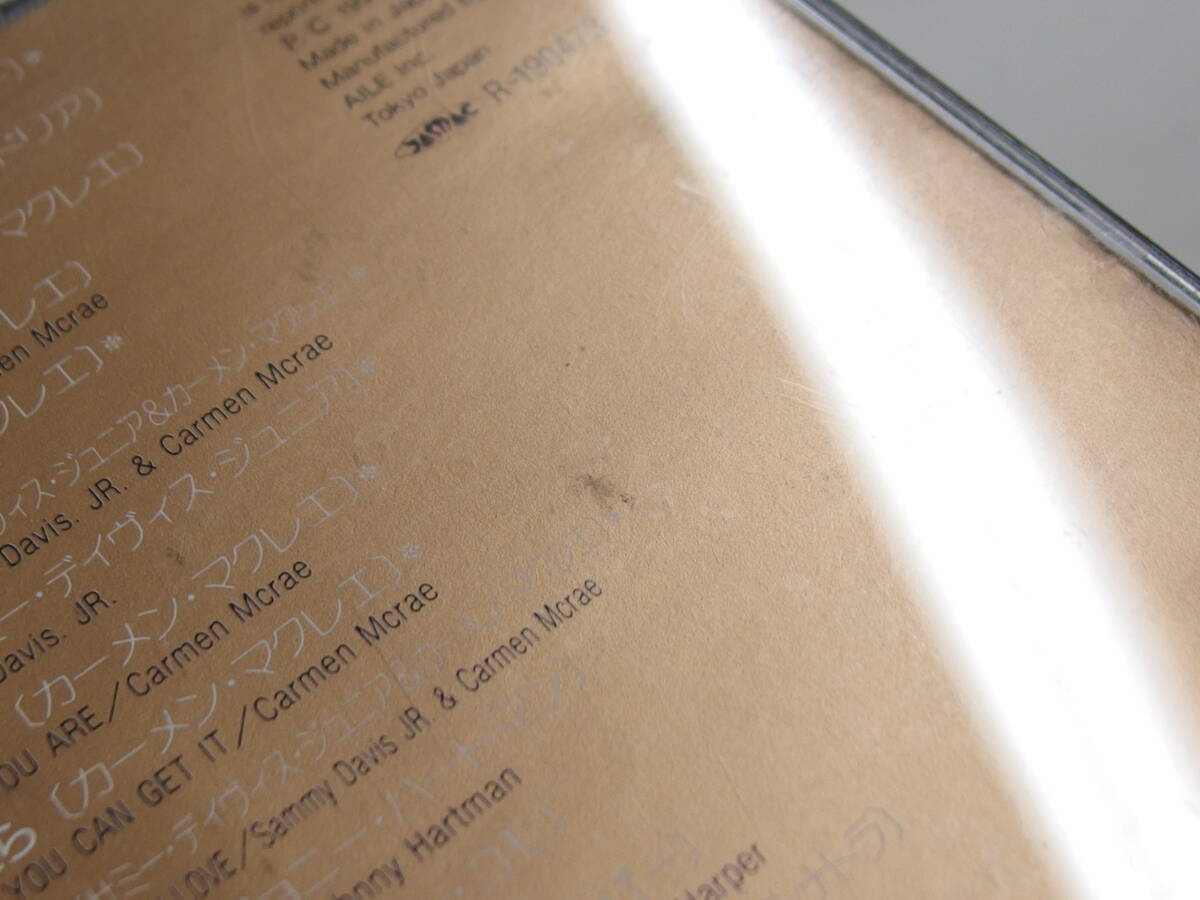 P. C 199
Made in Jap
Manufactured b
AILE Inc
Tokyo Japan
JASRAC R-190473
]*
ドリア]
マクレエ]
レエ]
en Mcrae
クレエ]*
ヴィス・ジュニア&カーメン・マクレエ]*
Davis. JR. & Carmen Mcrae
ー・デイヴィス・ジュニア]*
Davis. JR.
[カーメン・マクレエ]*
OU ARE/Carmen Mcrae
5 [カーメン・マクレエ]*
YOU CAN GET IT/Carmen Mcrae
サミー・デイヴィス・ジュニア&カーメン・マクレエ]*
LOVE/Sammy Davis JR. & Carmen Mcrae
ニー・ハートマン]
hnny Hartman
Harper
ナトラ]